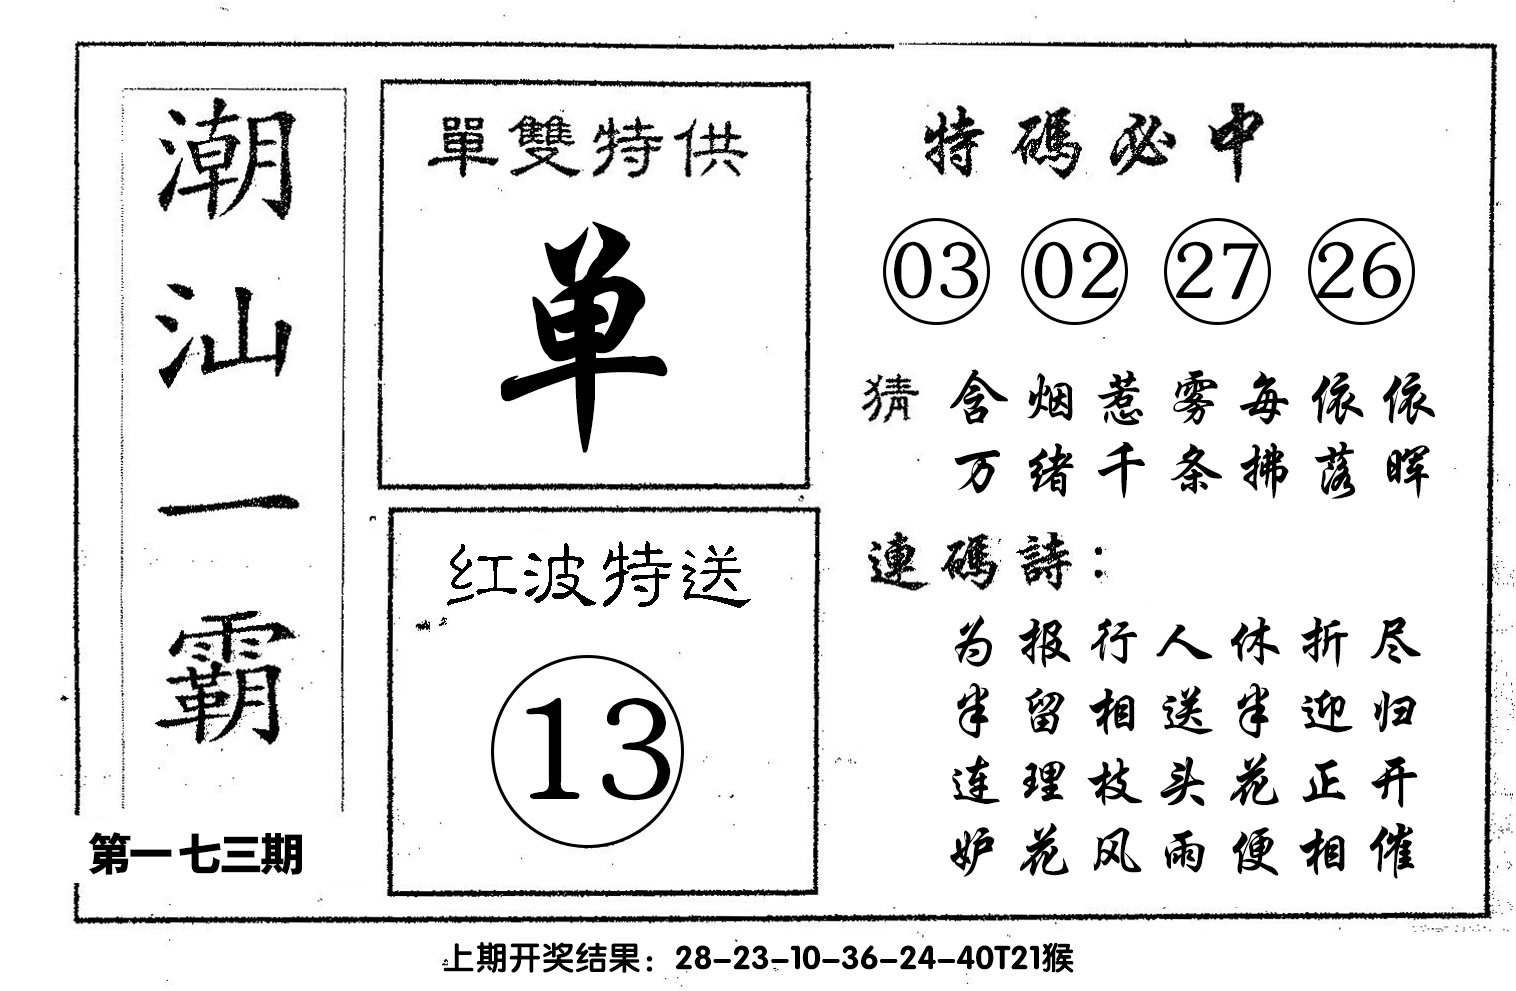 潮汕一霸
第一七三期
單雙特供
单
红波特送
13
特碼必中
03 02 27 26
猜 含烟惹雾每依依
万绪千条拂落晖
連碼詩：
为报行人休折尽
半留相送半迎归
连理枝头花正开
妒花风雨便相催
上期开奖结果：28-23-10-36-24-40T21猴